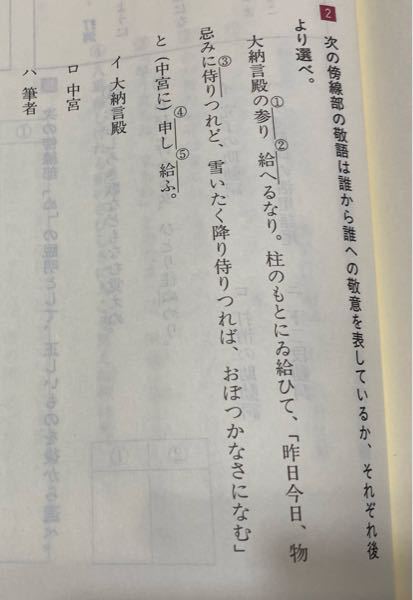 2 次の傍線部の敬語は誰から誰への敬意を表しているか、それぞれ後
より選べ。
大納言殿の①参り②給へるなり。柱のもとにゐ給ひて、「昨日今日、物
忌みに③侍りつれど、雪いたく降り侍りつれば、おぼつかなさになむ」
と(中宮に)④申し⑤給ふ。
イ 大納言殿
ロ 中宮
ハ 筆者